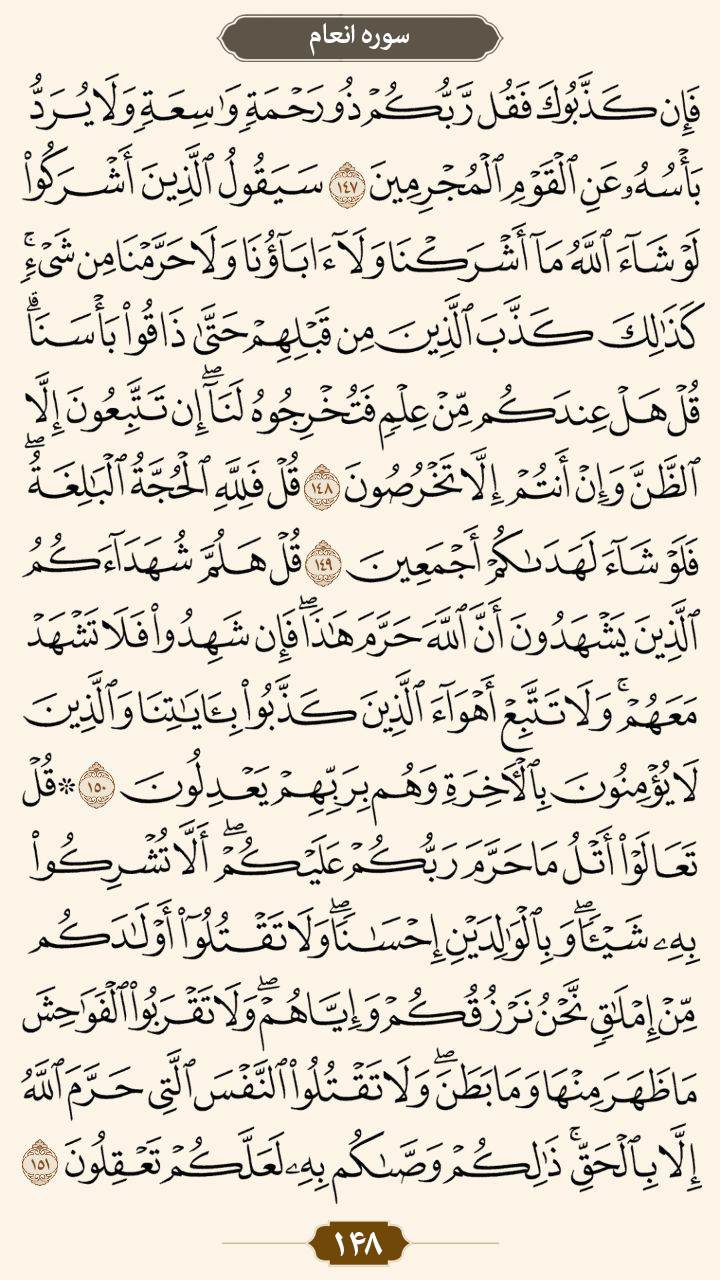 سوره انعام
فَإِن كَذَّبُوكَ فَقُل رَّبُّكُمْ ذُو رَحْمَةٍ وَٰسِعَةٍ وَلَا يُرَدُّ
بَأْسُهُۥ عَنِ ٱلْقَوْمِ ٱلْمُجْرِمِينَ ١٤٧ سَيَقُولُ ٱلَّذِينَ أَشْرَكُوا۟
لَوْ شَآءَ ٱللَّهُ مَآ أَشْرَكْنَا وَلَآ ءَابَآؤُنَا وَلَا حَرَّمْنَا مِن شَىْءٍۚ
كَذَٰلِكَ كَذَّبَ ٱلَّذِينَ مِن قَبْلِهِمْ حَتَّىٰ ذَاقُوا۟ بَأْسَنَاۗ
قُلْ هَلْ عِندَكُم مِّنْ عِلْمٍ فَتُخْرِجُوهُ لَنَآۖ إِن تَتَّبِعُونَ إِلَّا
ٱلظَّنَّ وَإِنْ أَنتُمْ إِلَّا تَخْرُصُونَ ١٤٨ قُلْ فَلِلَّهِ ٱلْحُجَّةُ ٱلْبَٰلِغَةُۖ
فَلَوْ شَآءَ لَهَدَىٰكُمْ أَجْمَعِينَ ١٤٩ قُلْ هَلُمَّ شُهَدَآءَكُمُ
ٱلَّذِينَ يَشْهَدُونَ أَنَّ ٱللَّهَ حَرَّمَ هَٰذَاۖ فَإِن شَهِدُوا۟ فَلَا تَشْهَدْ
مَعَهُمْۚ وَلَا تَتَّبِعْ أَهْوَآءَ ٱلَّذِينَ كَذَّبُوا۟ بِـَٔايَٰتِنَا وَٱلَّذِينَ
لَا يُؤْمِنُونَ بِٱلْـَٔاخِرَةِ وَهُم بِرَبِّهِمْ يَعْدِلُونَ ١٥٠ * قُلْ
تَعَالَوْا۟ أَتْلُ مَا حَرَّمَ رَبُّكُمْ عَلَيْكُمْۖ أَلَّا تُشْرِكُوا۟
بِهِۦ شَيْـًٔاۖ وَبِٱلْوَٰلِدَيْنِ إِحْسَٰنًاۖ وَلَا تَقْتُلُوٓا۟ أَوْلَٰدَكُم
مِّنْ إِمْلَٰقٍ نَّحْنُ نَرْزُقُكُمْ وَإِيَّاهُمْۖ وَلَا تَقْرَبُوا۟ ٱلْفَوَٰحِشَ
مَا ظَهَرَ مِنْهَا وَمَا بَطَنَۖ وَلَا تَقْتُلُوا۟ ٱلنَّفْسَ ٱلَّتِى حَرَّمَ ٱللَّهُ
إِلَّا بِٱلْحَقِّۚ ذَٰلِكُمْ وَصَّىٰكُم بِهِۦ لَعَلَّكُمْ تَعْقِلُونَ ١٥١
۱۴۸